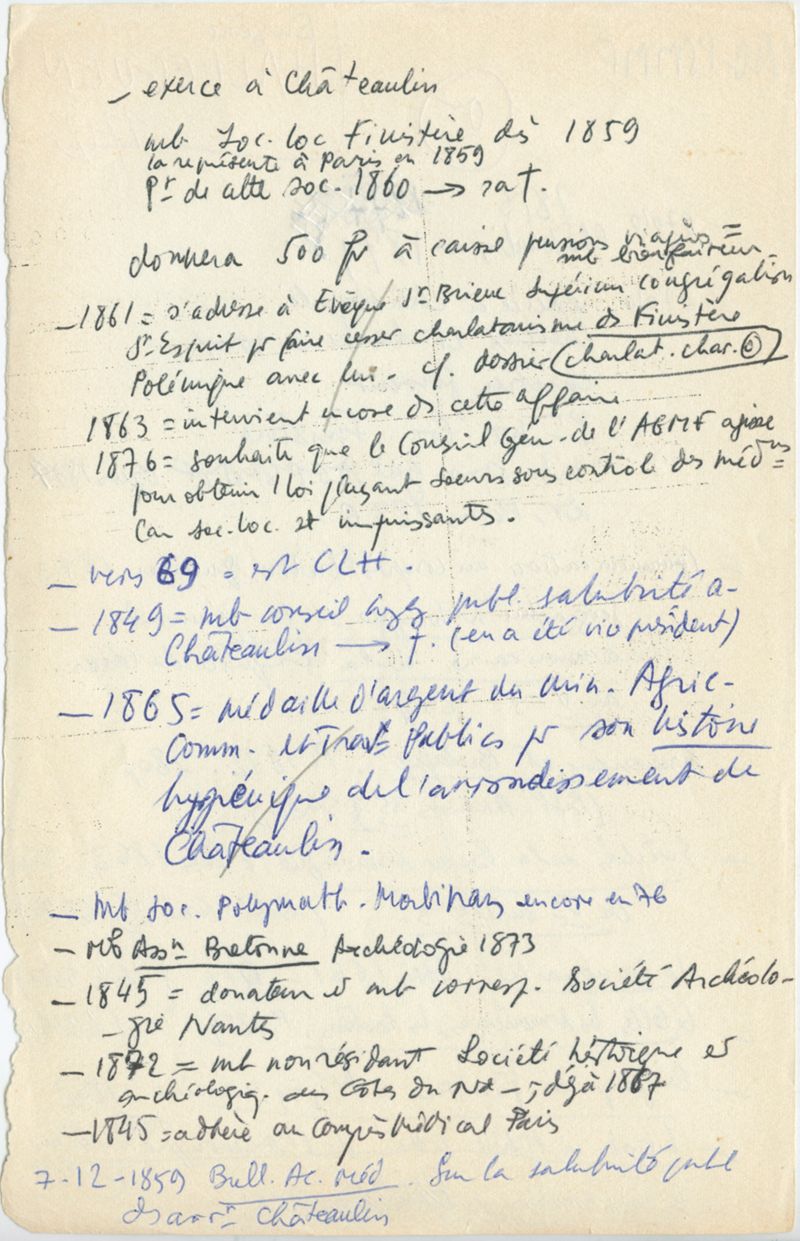 – exerce à Châteaulin
mb Soc. loc Finistère dès 1859
la représente à Paris en 1859
Pt de cette soc. 1860 → sa †.
donnera 500 fr à caisse pensions viagères =
mb bienfaiteur –
– 1861 = s'adresse à Evêque St Brieuc Supérieur congrégation
St-Esprit pr faire cesser charlatanisme ds Finistère
Polémique avec lui – cf. dossier charlat. char. ©
1863 = intervient encore ds cette affaire
1876 = souhaite que le Conseil Gén – de l'AGMF agisse
pour obtenir 1 loi plaçant soeurs sous controle des médns =
Car soc. loc. st impuissantes.
– vers 69 = est CLH.
– 1849 = mb conseil hyg publ. salubrité a-
Châteaulin → †. (en a été vice président)
– 1865 = médaille d'argent du Min. Agric –
Comm. et Trav Publics pr son histoire
hygiénique de l'arrondissement de
Châteaulin.
– Mb Soc. Polymath. Morbihan encore en 76
– Mb Assn Bretonne Archéologie 1873
– 1845 = donateur et mb corresp. Société Archéolo-
– gie Nantes
– 1872 = mb non résidant Société historique et
archéologiq. des Cotes du Nd – ; déjà 1867
– 1845 = adhère au Congrès Médical Paris
7-12-1859 Bull. Ac. Méd. Sur la salubrité publ
ds arrt Châteaulin